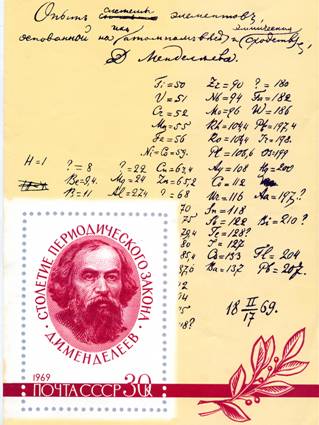 Опытъ системы элементовъ,
основанной на ихъ атомномъ вѣсѣ и химическомъ сходствѣ.
Д. Менделѣева.
Ti=50 Zr=90 ?=180
V=51 Nb=94 Ta=182
Cr=52 Mo=96 W=186
Mn=55 Rh=104,4 Pt=197,4
Fe=56 Ru=104,4 Ir=198.
Ni=Co=59. Pl=106,6 Os=199
H=1 ?=8 ?=22 Cu=63,4 Ag=108 Hg=200
Be=9,4. Mg=24 Zn=65,2 Cd=112
B=11 Al=27,4 ?=68 Ur=116 Au=197?
Sn=118
Sb=122 Bi=210?
Te=128?
I=127
85,4 Cs=133 Tl=204
87,6 Ba=137 Pb=207.
18 II/17 69.
СТОЛЕТИЕ ПЕРИОДИЧЕСКОГО ЗАКОНА
Д.И.МЕНДЕЛЕЕВ
1969
ПОЧТА СССР 30к